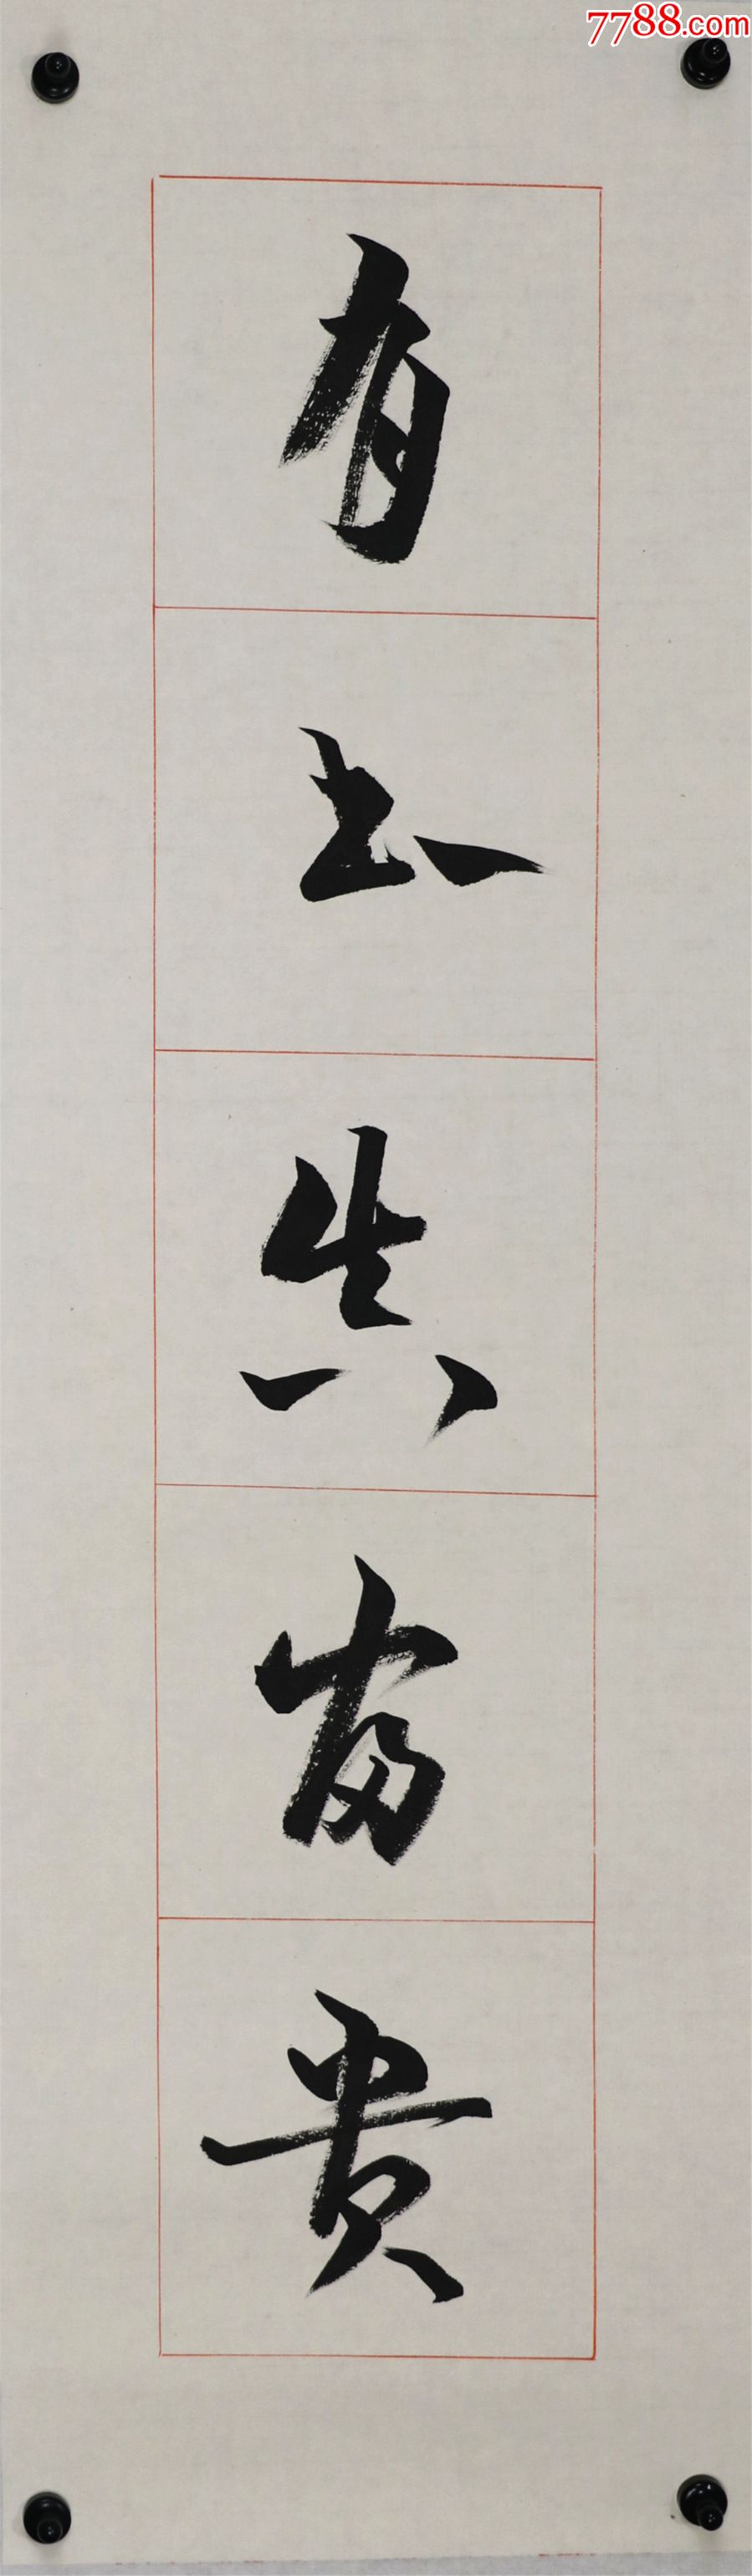 7788.com
有书真富贵